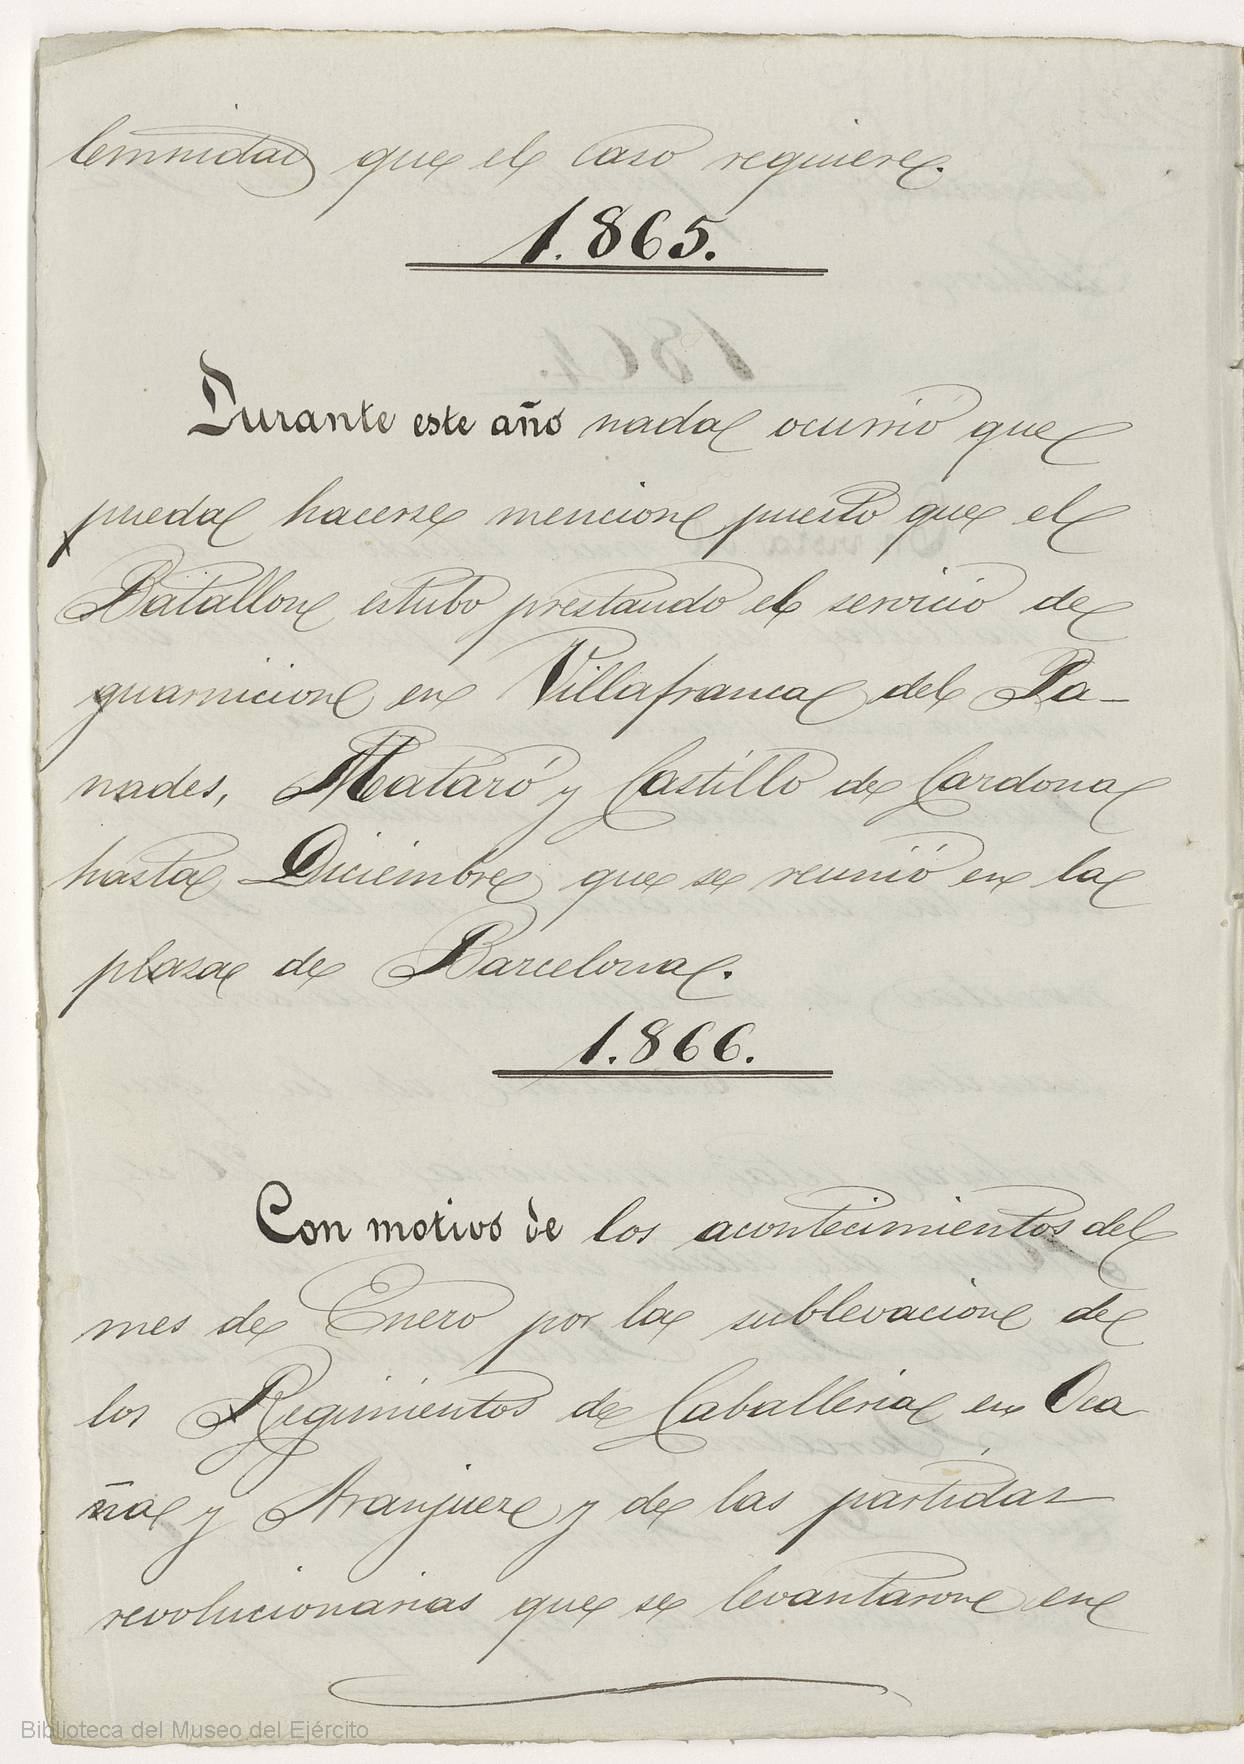 lemnidad que el caso requiere.
1.865.
Durante este año nada ocurrió que
pueda hacerse mencion puesto que el
Batallon estubo prestando el servicio de
guarnicion en Villafranca del Pa-
nades, Mataró y Castillo de Cardona
hasta Diciembre que se reunió en la
plaza de Barcelona.
1.866.
Con motivo de los acontecimientos del
mes de Enero por la sublevacion de
los Regimientos de Caballeria en Oca
ña y Aranjuez y de las partidas
revolucionarias que se levantaron en
Biblioteca del Museo del Ejército